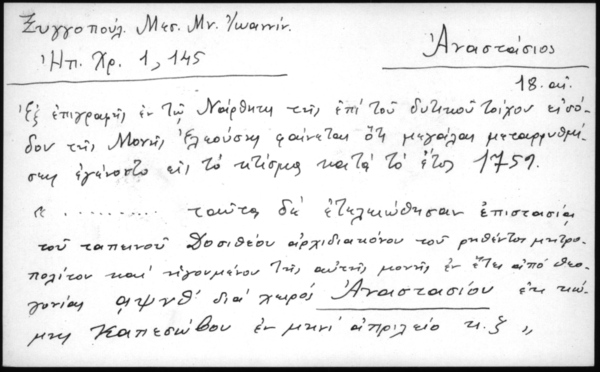 Ξυγγοπούλ. Μεσ. Μν. Ἰωαννίν.
Ἠπ. Χρ. 1, 145
Ἀναστάσιος
18. αἰ.
Ἐξ ἐπιγραφῆς ἐν τῷ Νάρθηκι τῆς ἐπὶ τοῦ δυτικοῦ τοίχου εἰσό-
δου τῆς Μονῆς Ἐλεούσης φαίνεται ὅτι μεγάλαι μεταρρυθμί-
σεις ἐγένοντο εἰς τὸ κτίσμα κατὰ τὸ ἔτος 1759.
« .......... ταῦτα δὲ ἐτελειώθησαν ἐπιστασίᾳ
τοῦ ταπεινοῦ Δοσιθέου ἀρχιδιακόνου τοῦ ρηθέντος μητρο-
πολίτου καὶ ἡγουμένου τῆς αὐτῆς μονῆς ἐν ἔτει ἀπὸ θεο-
γονίας αψνθ' διὰ χειρὸς Ἀναστασίου ἐκ κώ-
μης Καπεσώβου ἐν μηνὶ ἀπριλείο κ.ξ »